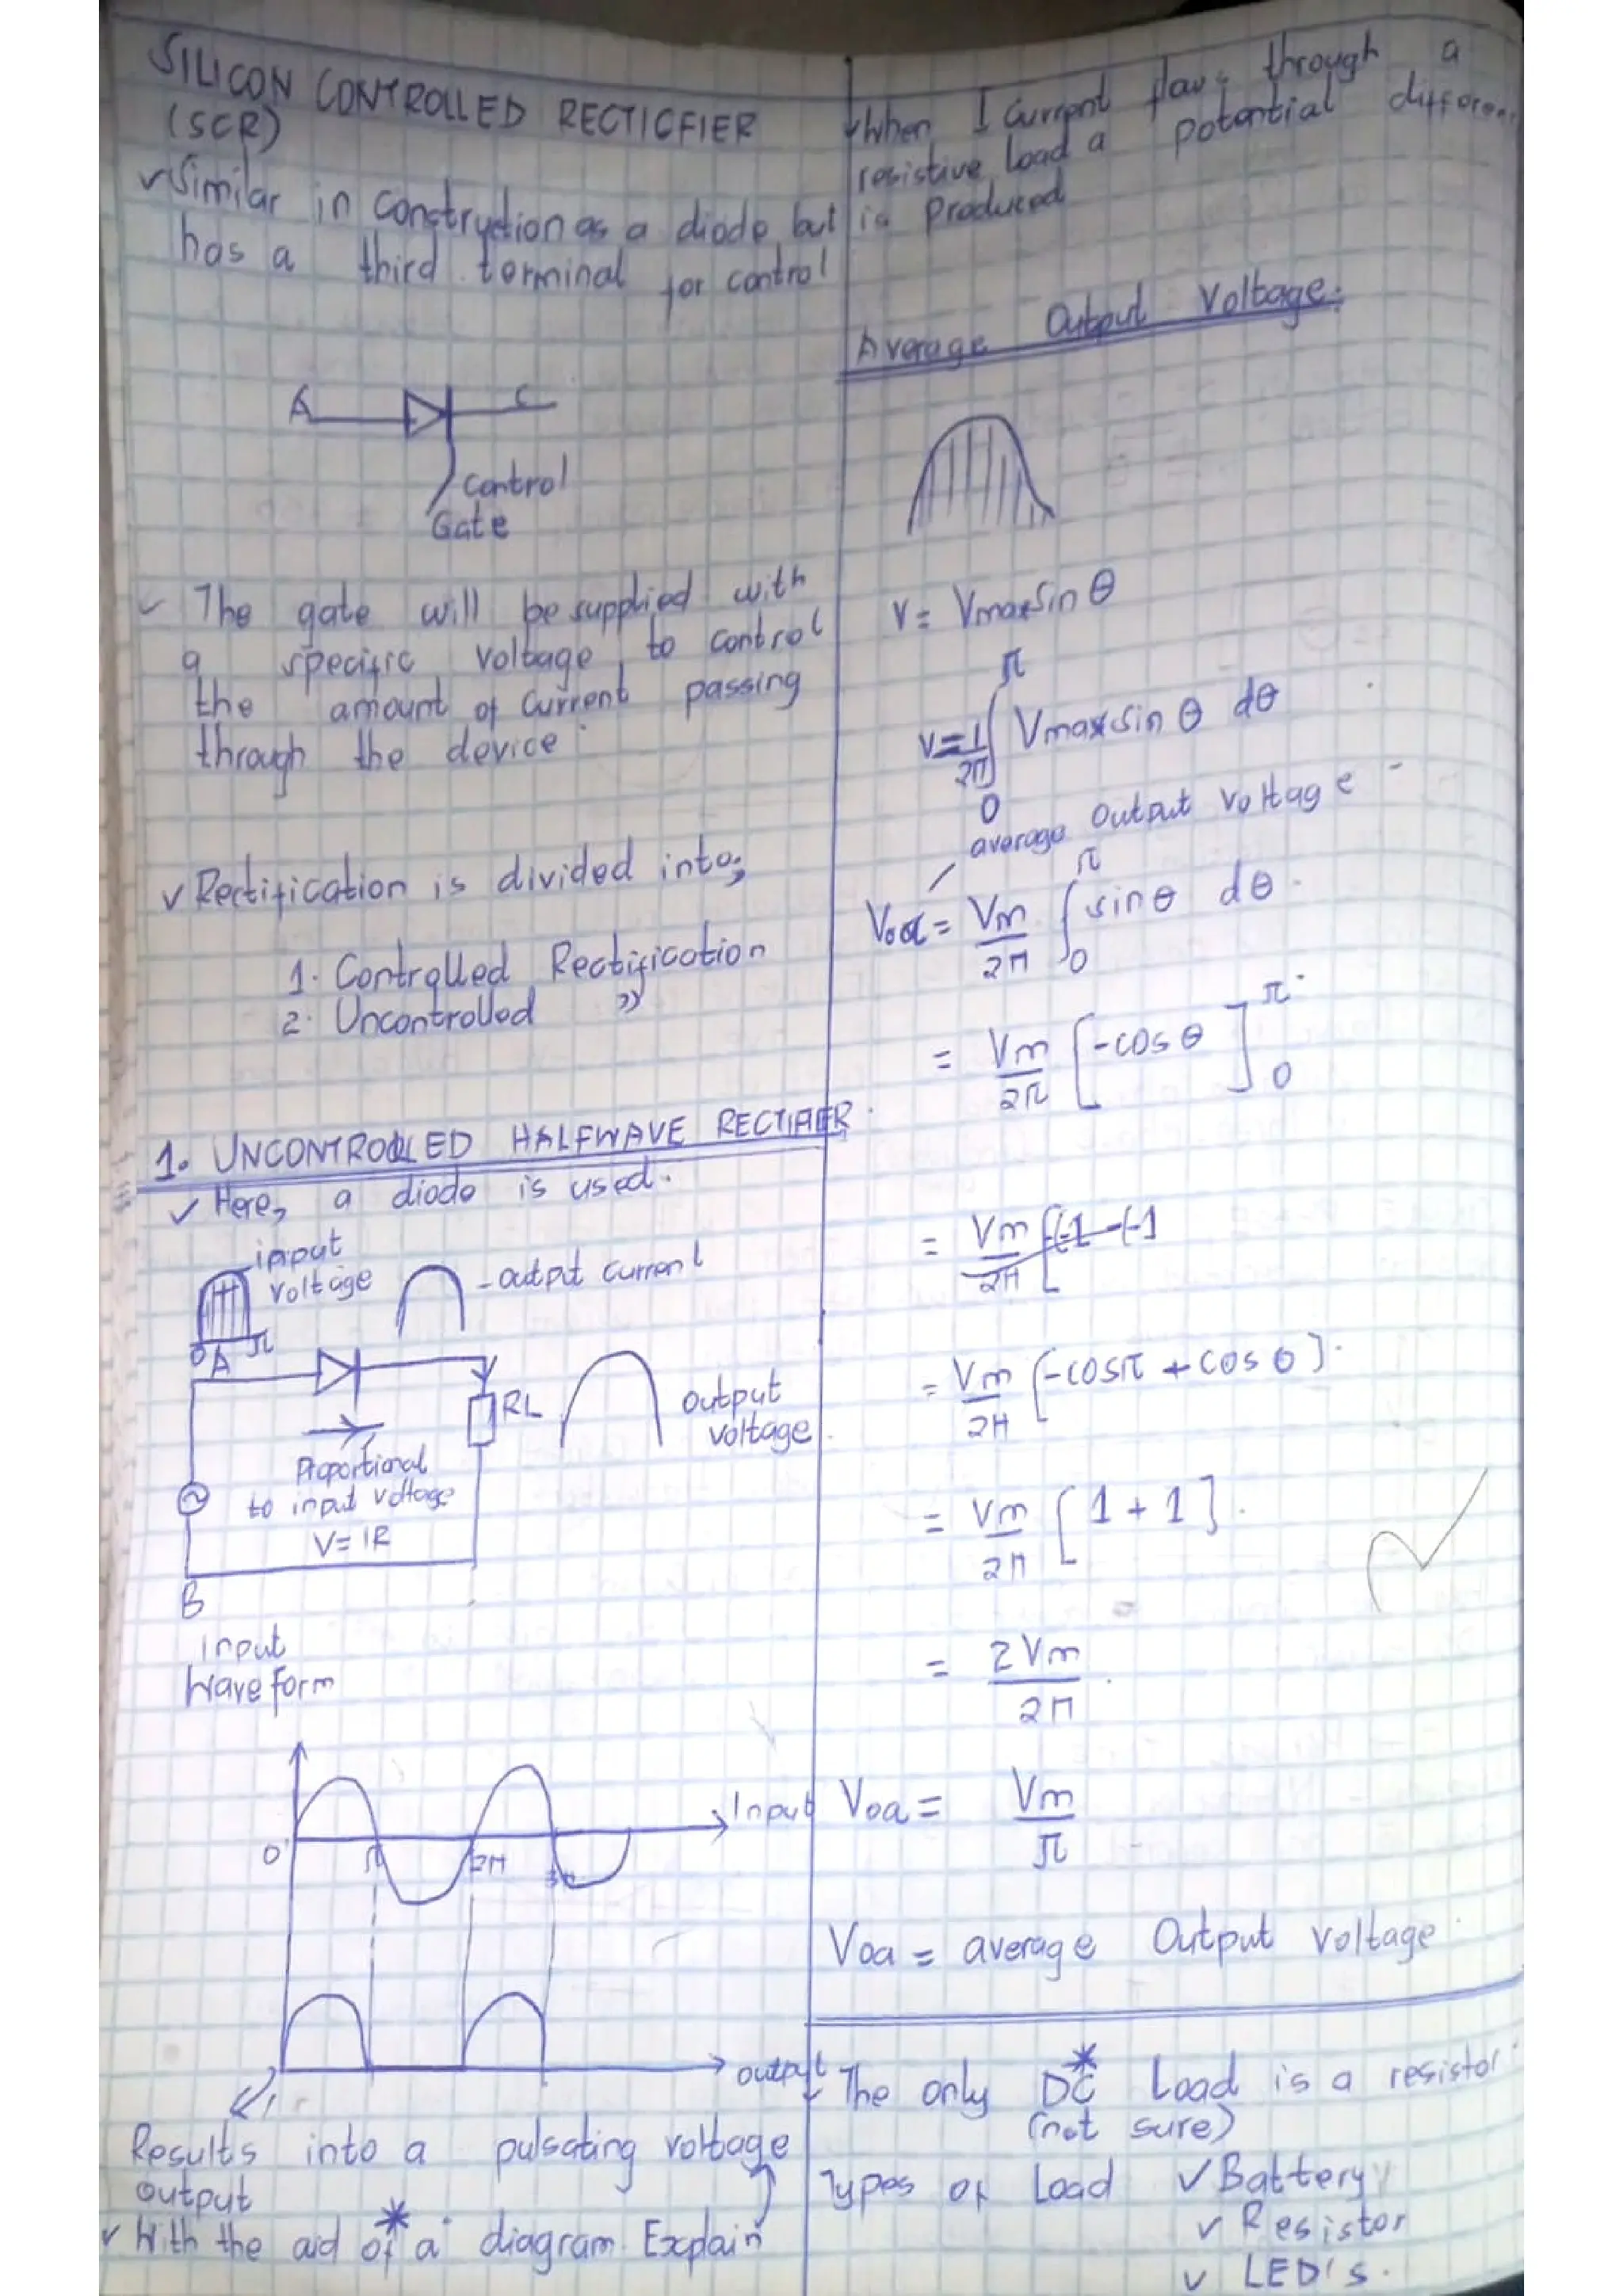 SILICON CONTROLLED RECTICFIER
(SCR)
✓ Similar in construction as a diode but
has a third terminal for control
A
C
Control
Gate
✓ The gate will be supplied with
a specific voltage to control
the amount of current passing
through the device.
✓ Rectification is divided into;
1. Controlled Rectification
2. Uncontrolled ”
1. UNCONTROLLED HALFWAVE RECTIFIER.
✓ Here, a diode is used.
input
voltage
- output current
0 π
A
RL
output
voltage
Proportional
to input voltage
V = IR
B
input
Waveform
Input
0 π 2π 3π
output
Results into a pulsating voltage
output
✓ With the aid of a diagram. Explain
✓ When I Current flows through a
resistive load a potential different
is produced
Average Output Voltage:
V = Vmax Sin θ
V = 1/2π ∫₀^π Vmax Sin θ dθ
average Output Voltage
Voa = Vm/2π ∫₀^π sin θ dθ.
= Vm/2π [-cos θ]₀^π
= Vm/2π [(-1 -(-1
= Vm/2π [-cos π + cos 0].
= Vm/2π [1 + 1].
= 2Vm/2π.
Voa = Vm/π
Voa = average Output voltage
✓ The only DC* Load is a resistor
(not sure)
Types of Load ✓ Battery
✓ Resistor
✓ LED's.